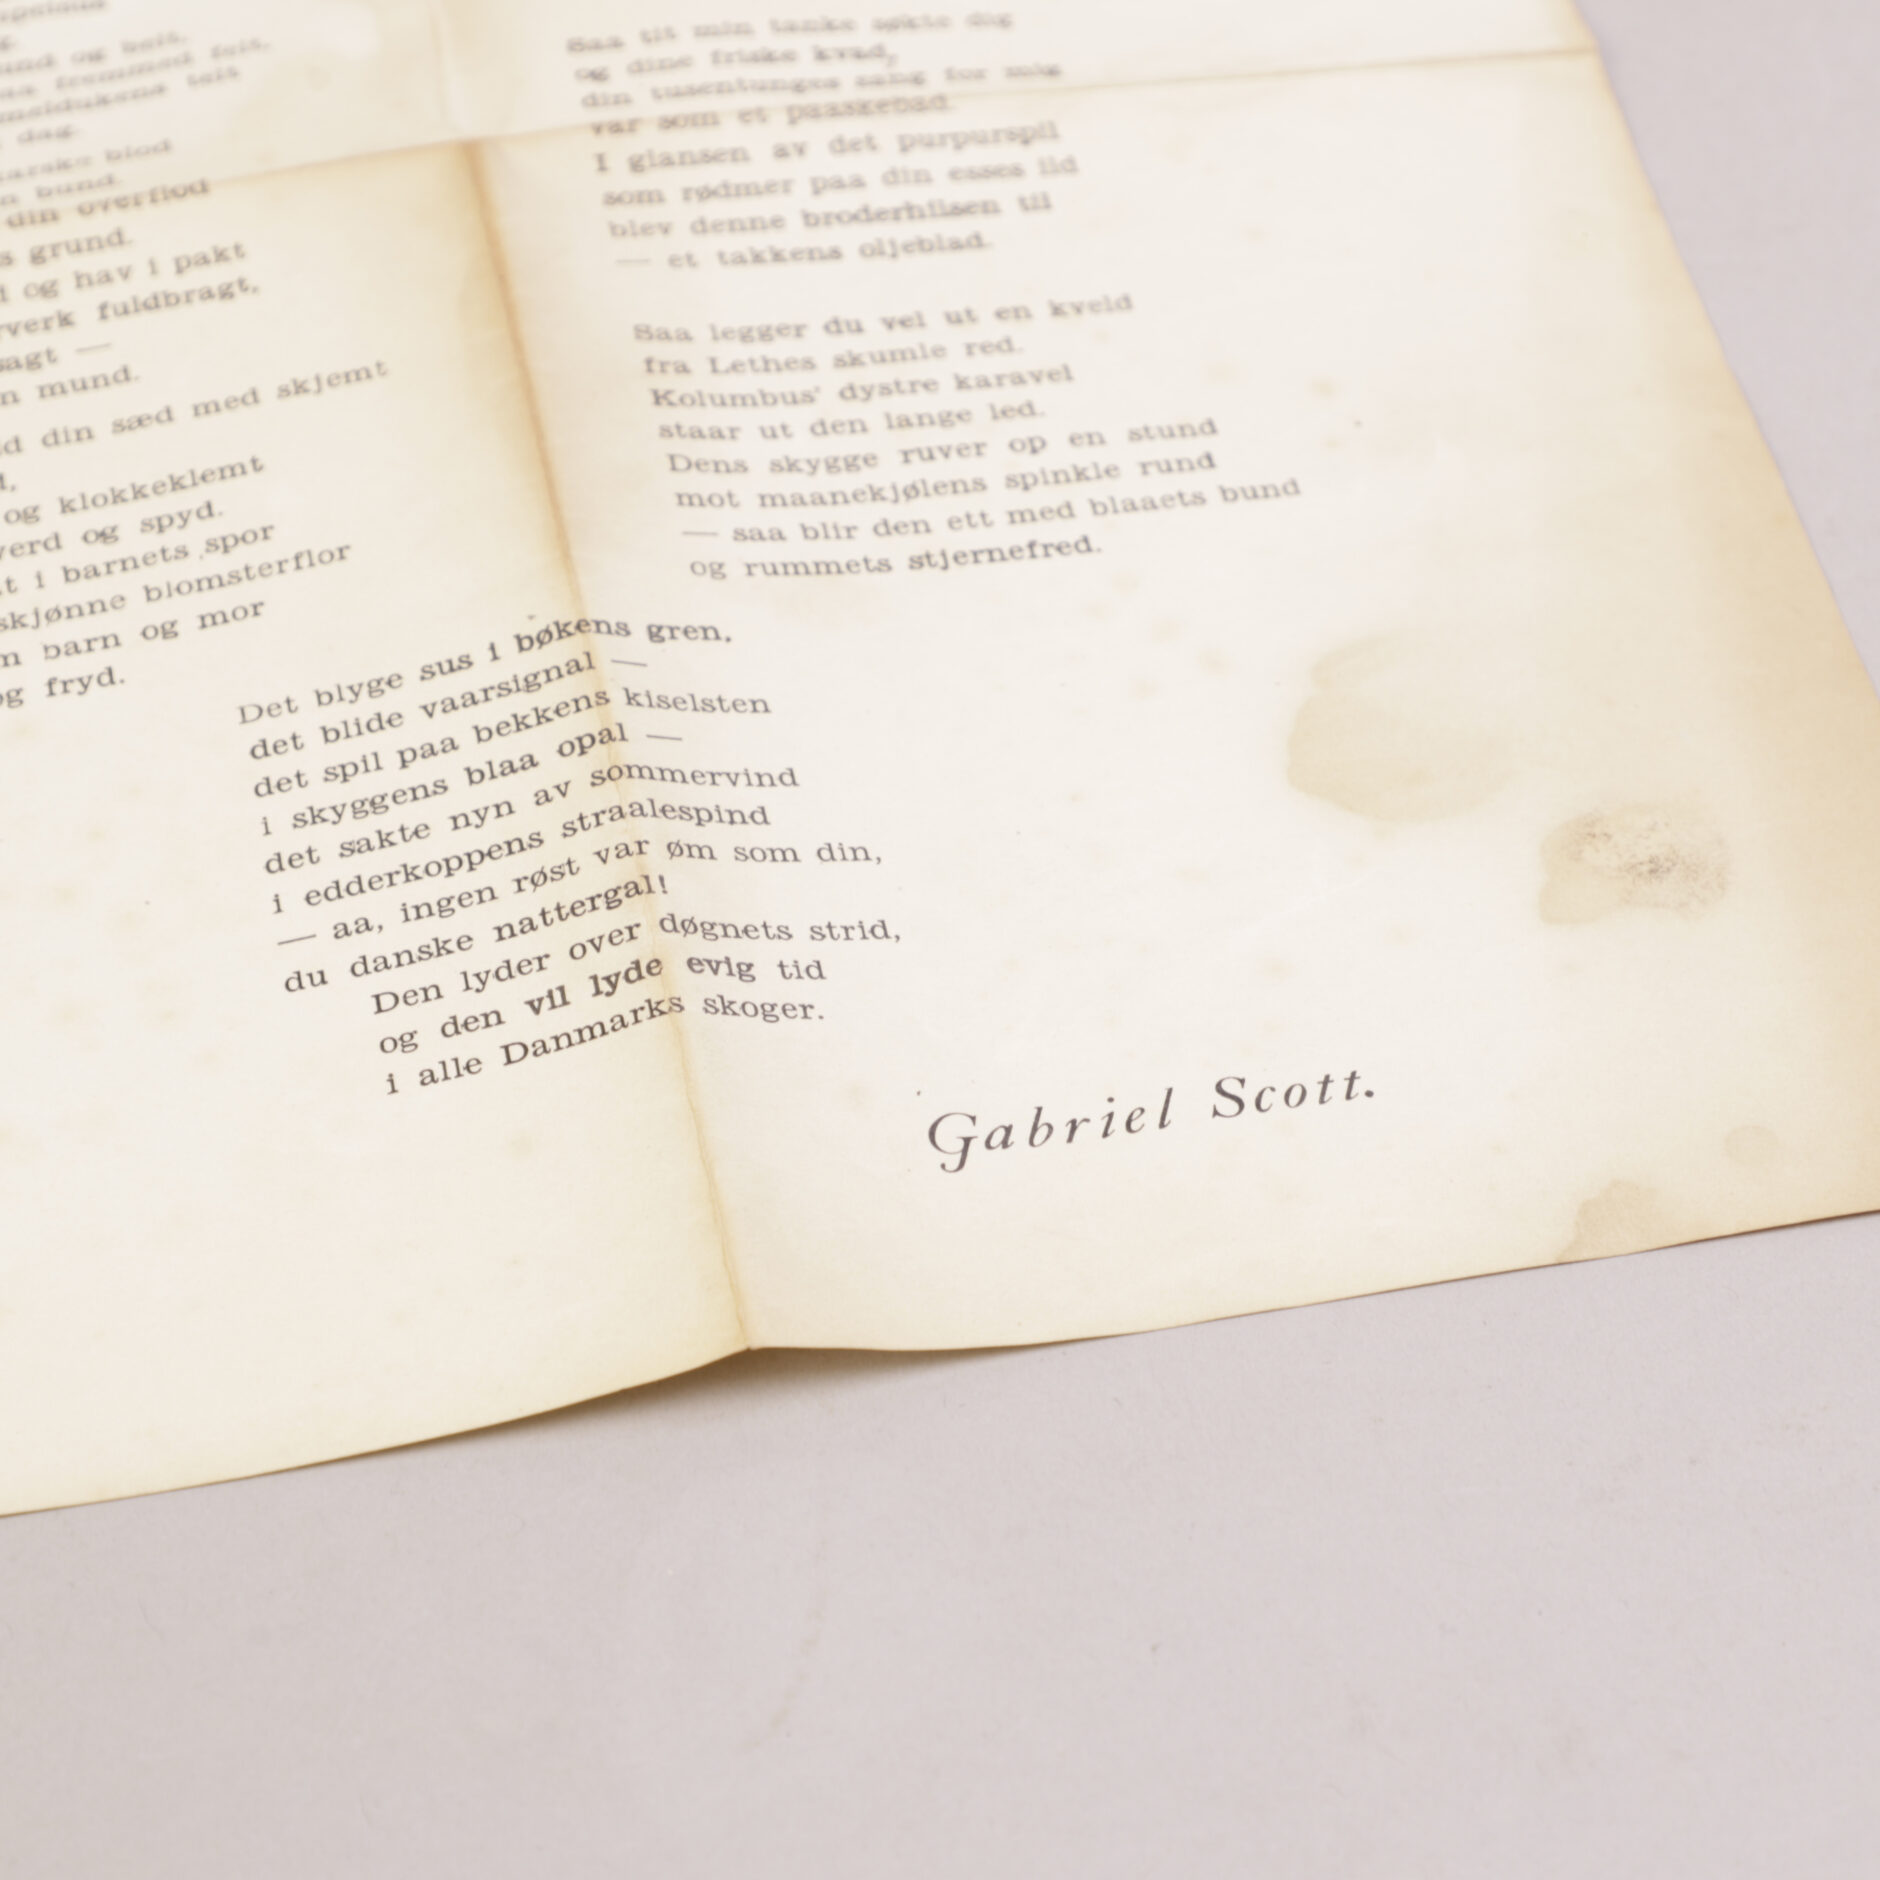 og heit,
fremmed felt,
dag.
blod
bund.
din overflod
grund.
og hav i pakt
fuldbragt,
mund.
din sæd med skjemt
og klokkeklemt
og spyd.
i barnets spor
skjønne blomsterflor
barn og mor
fryd.
Saa tit min tanke søkte dig
og dine friske kvad,
din tusentunges sang for mig
var som et paaskebad.
I glansen av det purpurspil
som rødmer paa din esses ild
blev denne broderhilsen til
— et takkens oljeblad.
Saa legger du vel ut en kveld
fra Lethes skumle red.
Kolumbus' dystre karavel
staar ut den lange led.
Dens skygge ruver op en stund
mot maanekjølens spinkle rund
— saa blir den ett med blaaets bund
og rummets stjernefred.
Det blyge sus i bøkens gren,
det blide vaarsignal —
det spil paa bekkens kiselsten
i skyggens blaa opal —
det sakte nyn av sommervind
i edderkoppens straalespind
— aa, ingen røst var øm som din,
du danske nattergal!
Den lyder over døgnets strid,
og den vil lyde evig tid
i alle Danmarks skoger.
Gabriel Scott.